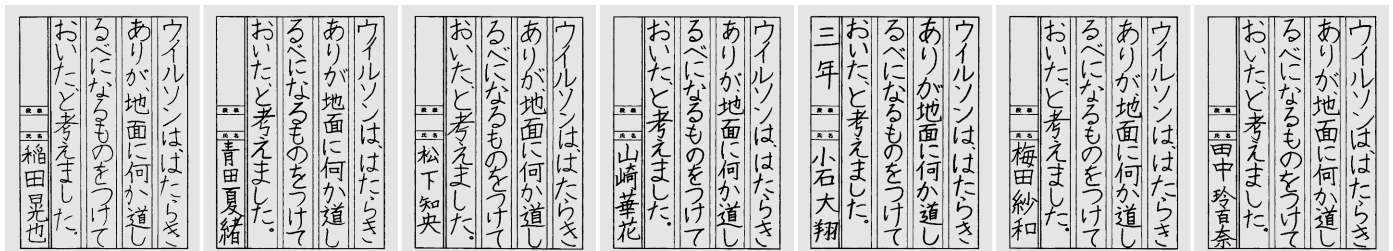 ウイルソンは、はたらき
ありが、地面に何か道し
るべになるものをつけて
おいた、と考えました。
段級
氏名
稲田晃也
ウイルソンは、はたらき
ありが、地面に何か道し
るべになるものをつけて
おいた、と考えました。
段級
氏名
青田夏緒
ウイルソンは、はたらき
ありが、地面に何か道し
るべになるものをつけて
おいた、と考えました。
段級
氏名
松下知央
ウイルソンは、はたらき
ありが、地面に何か道し
るべになるものをつけて
おいた、と考えました。
段級
氏名
山崎華花
ウイルソンは、はたらき
ありが地面に何か道し
るべになるものをつけて
おいた、と考えました。
三年
段級
氏名
小石大翔
ウイルソンは、はたらき
ありが、地面に何か道し
るべになるものをつけて
おいた、と考えました。
段級
氏名
梅田紗和
ウイルソンは、はたらき
ありが、地面に何か道し
るべになるものをつけて
おいた、と考えました。
段級
氏名
田中玲百奈